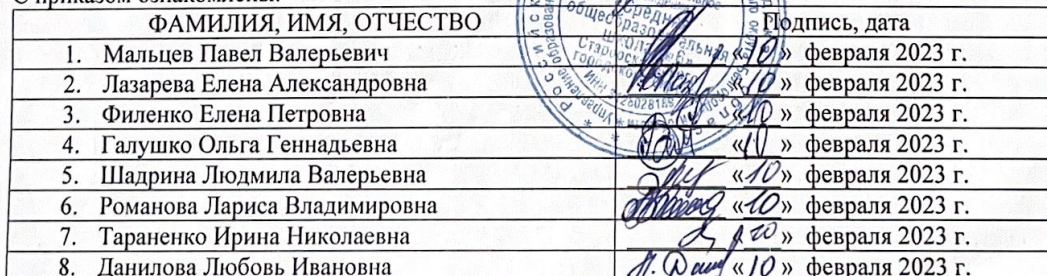 С приказом ознакомлены:
ФАМИЛИЯ, ИМЯ, ОТЧЕСТВО Подпись, дата
1. Мальцев Павел Валерьевич «10» февраля 2023 г.
2. Лазарева Елена Александровна «10» февраля 2023 г.
3. Филенко Елена Петровна «10» февраля 2023 г.
4. Галушко Ольга Геннадьевна «10» февраля 2023 г.
5. Шадрина Людмила Валерьевна «10» февраля 2023 г.
6. Романова Лариса Владимировна «10» февраля 2023 г.
7. Тараненко Ирина Николаевна 10» февраля 2023 г.
8. Данилова Любовь Ивановна «10» февраля 2023 г.
общеобразовательная